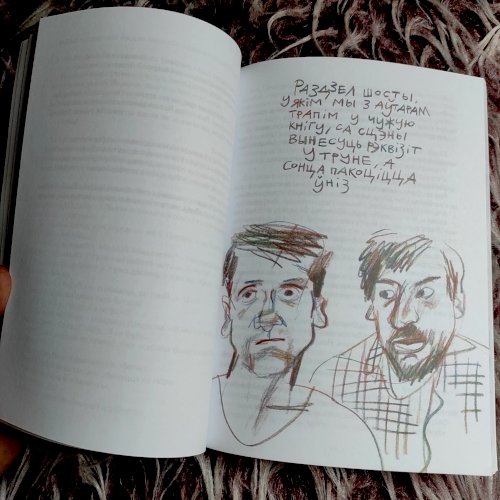 РАЗДЗЕЛ ШОСТЫ,
У ЯКІМ МЫ З АЎТАРАМ
ТРАПІМ У ЧУЖУЮ
КНІГУ, СА СЦЭНЫ
ВЫНЕСУЦЬ РЭКВІЗІТ
У ТРУНЕ, А
СОНЦА ПАКОЦІЦЦА
ЎНІЗ